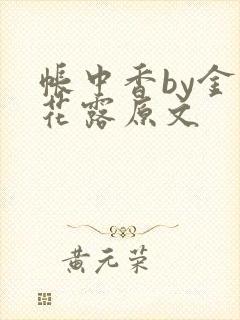 帳中香by金
花露原文
黄元荣